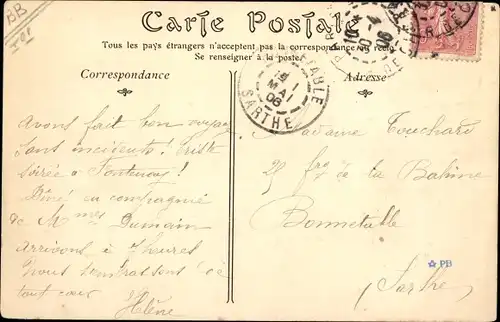 BB
Carte Postale
Tous les pays étrangers n'acceptent pas la correspondance au recto
Se renseigner à la poste
Correspondance
Adresse
SARTHE
Avons fait bon voyage
sans incidents! Triste
soirée à Fontenay!
Dîné en compagnie
de Mmes Dumain
Arrivons à 7 heures
Vous embrassent de
tout cœur
Hélène
Madame Touchard
25 frg de la Baleine
Bonnetable
Sarthe
PB